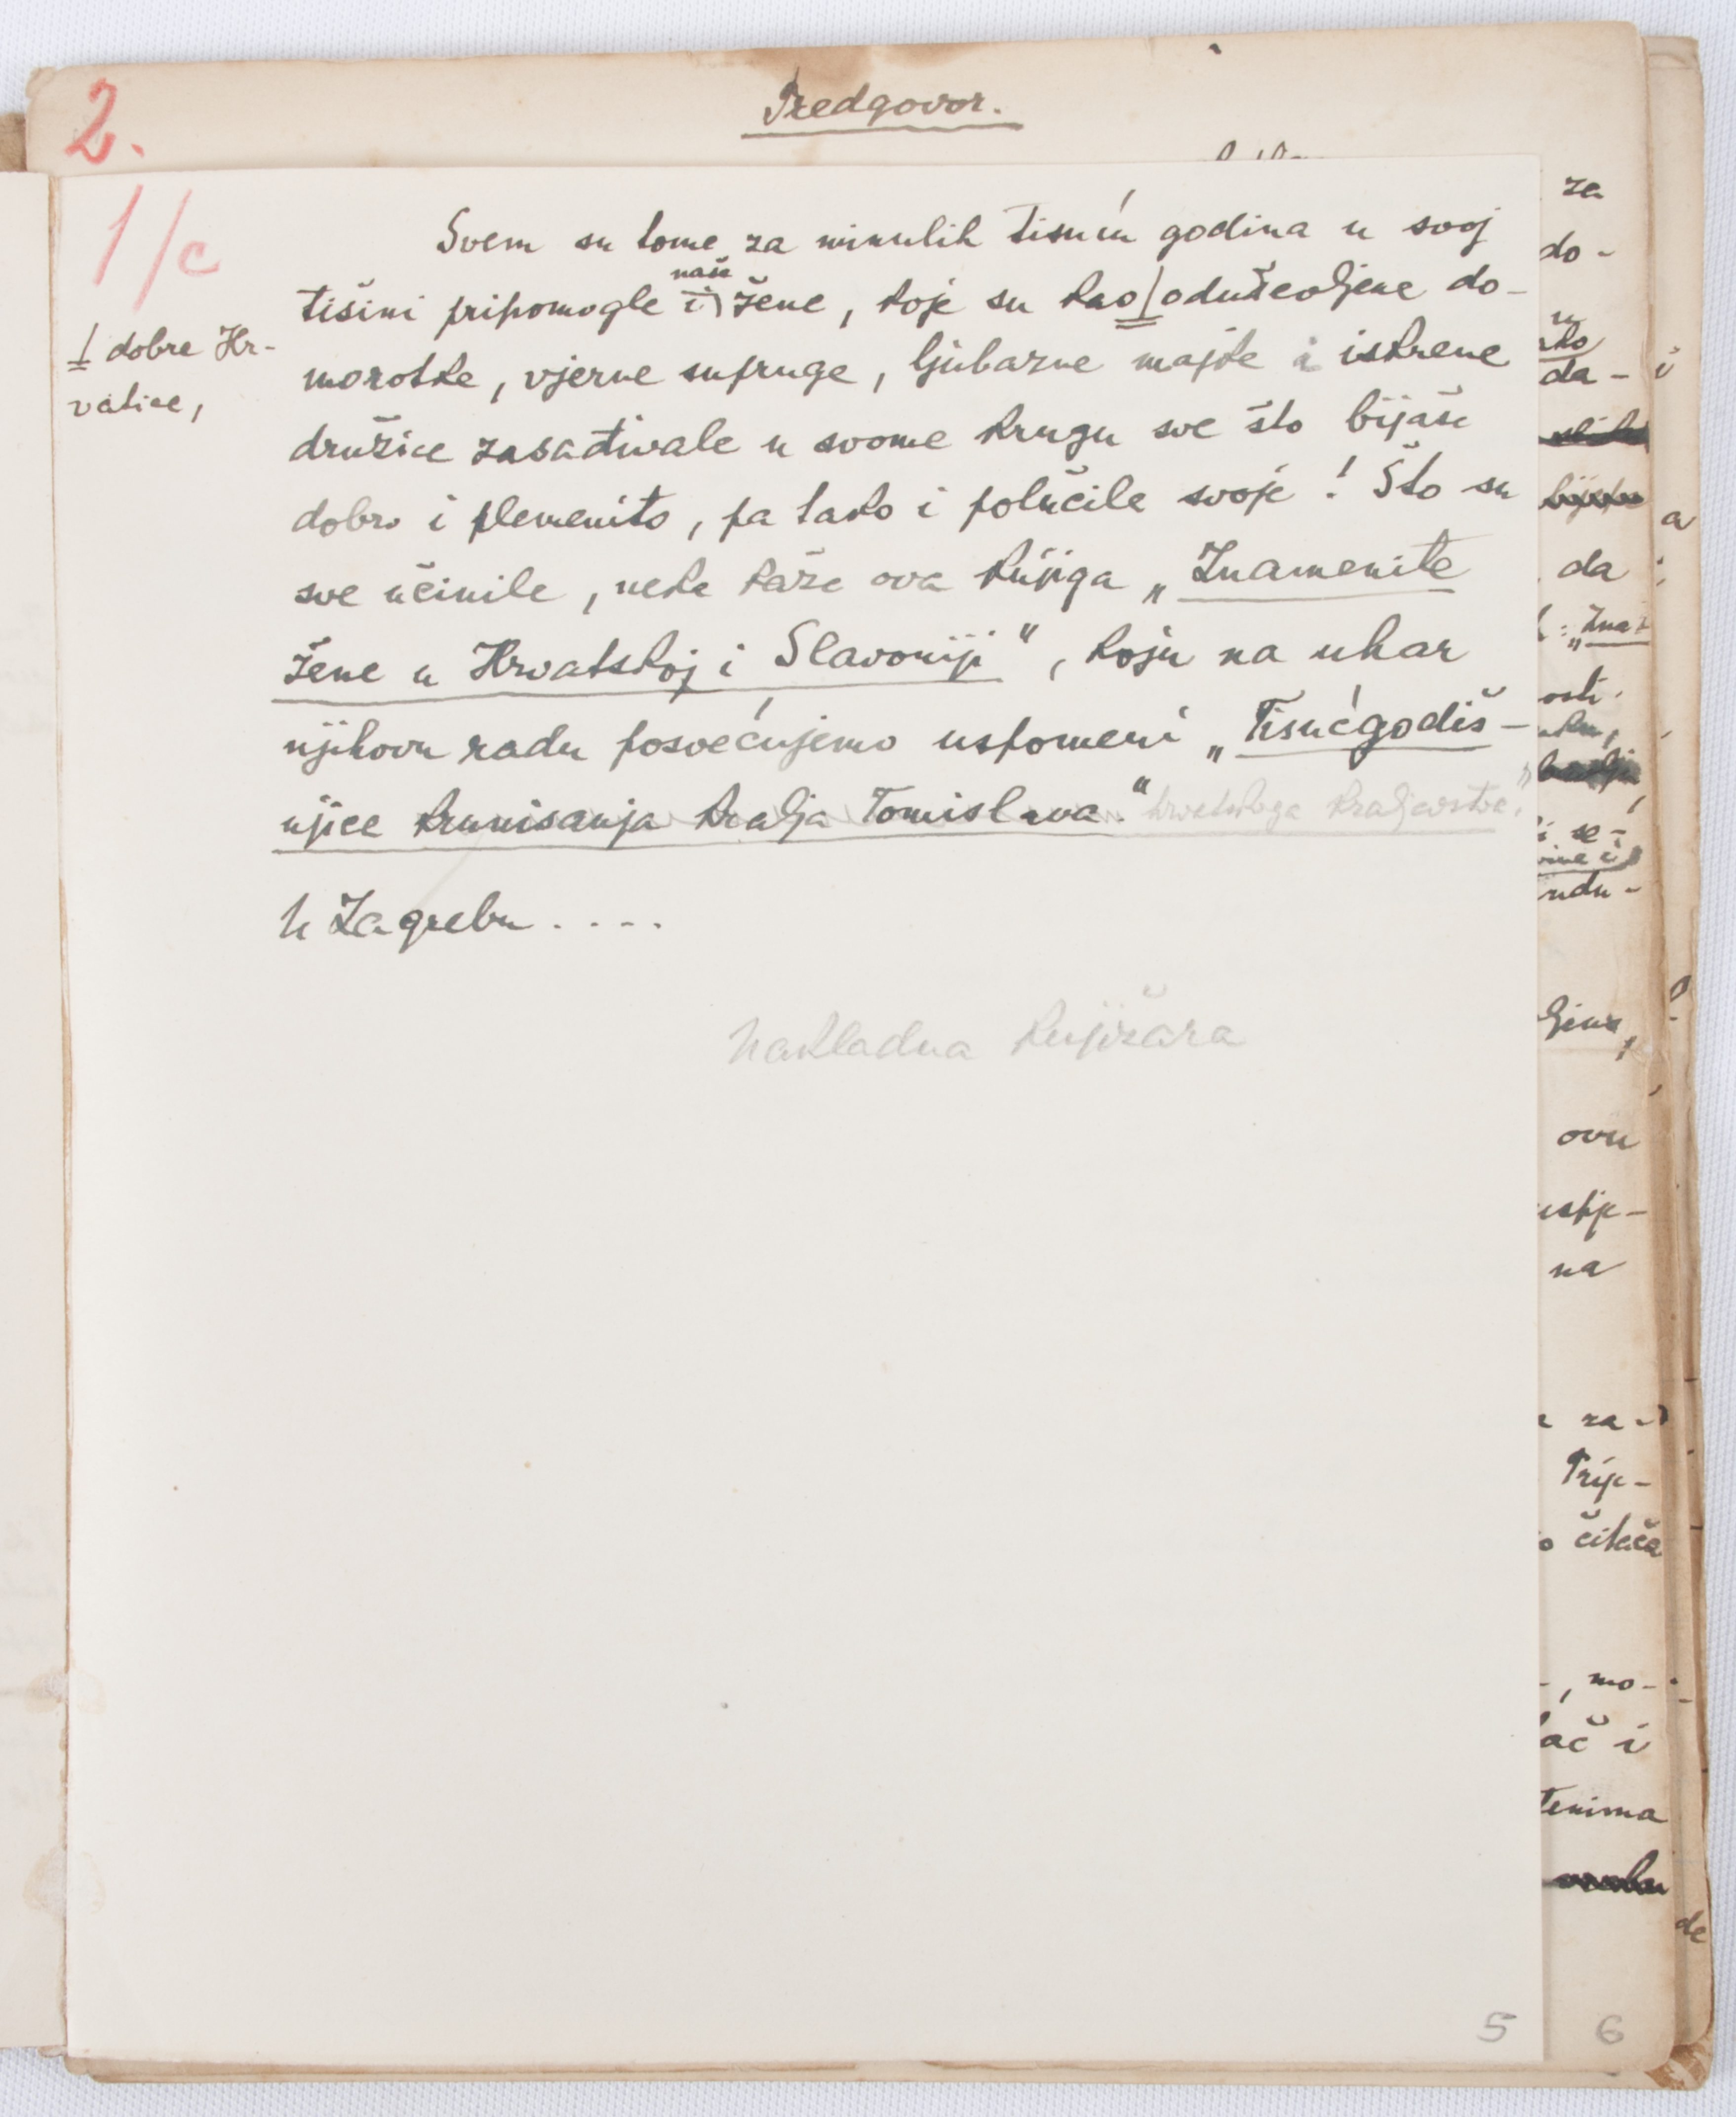 2.
Predgovor.
1/c
Svem su tome za minulih tisuću godina u svoj
naše
tišini pripomogle i žene, koje su kao oduševljene do-
morotke, vjerne supruge, ljubazne majke i iskrene
⊥ dobre Hr-
vatice,
družice zasađivale u svome krugu sve što bijaše
dobro i plemenito, pa tako i polučile svoje! Što su
sve učinile, neka kaže ova knjiga „Znamenite
žene u Hrvatskoj i Slavoniji“, koju na uhar
njihovu radu posvećujemo uspomeni „Tisućgodiš-
njice krunisanja kralja Tomislava.“ hrvatskoga kraljevstva.“
U Zagrebu . . . .
Nakladna knjižara
za
do-
da-
da
„Zna-
ovu
na
za-
Prip-
čitača
, mo-
i
de
5
6